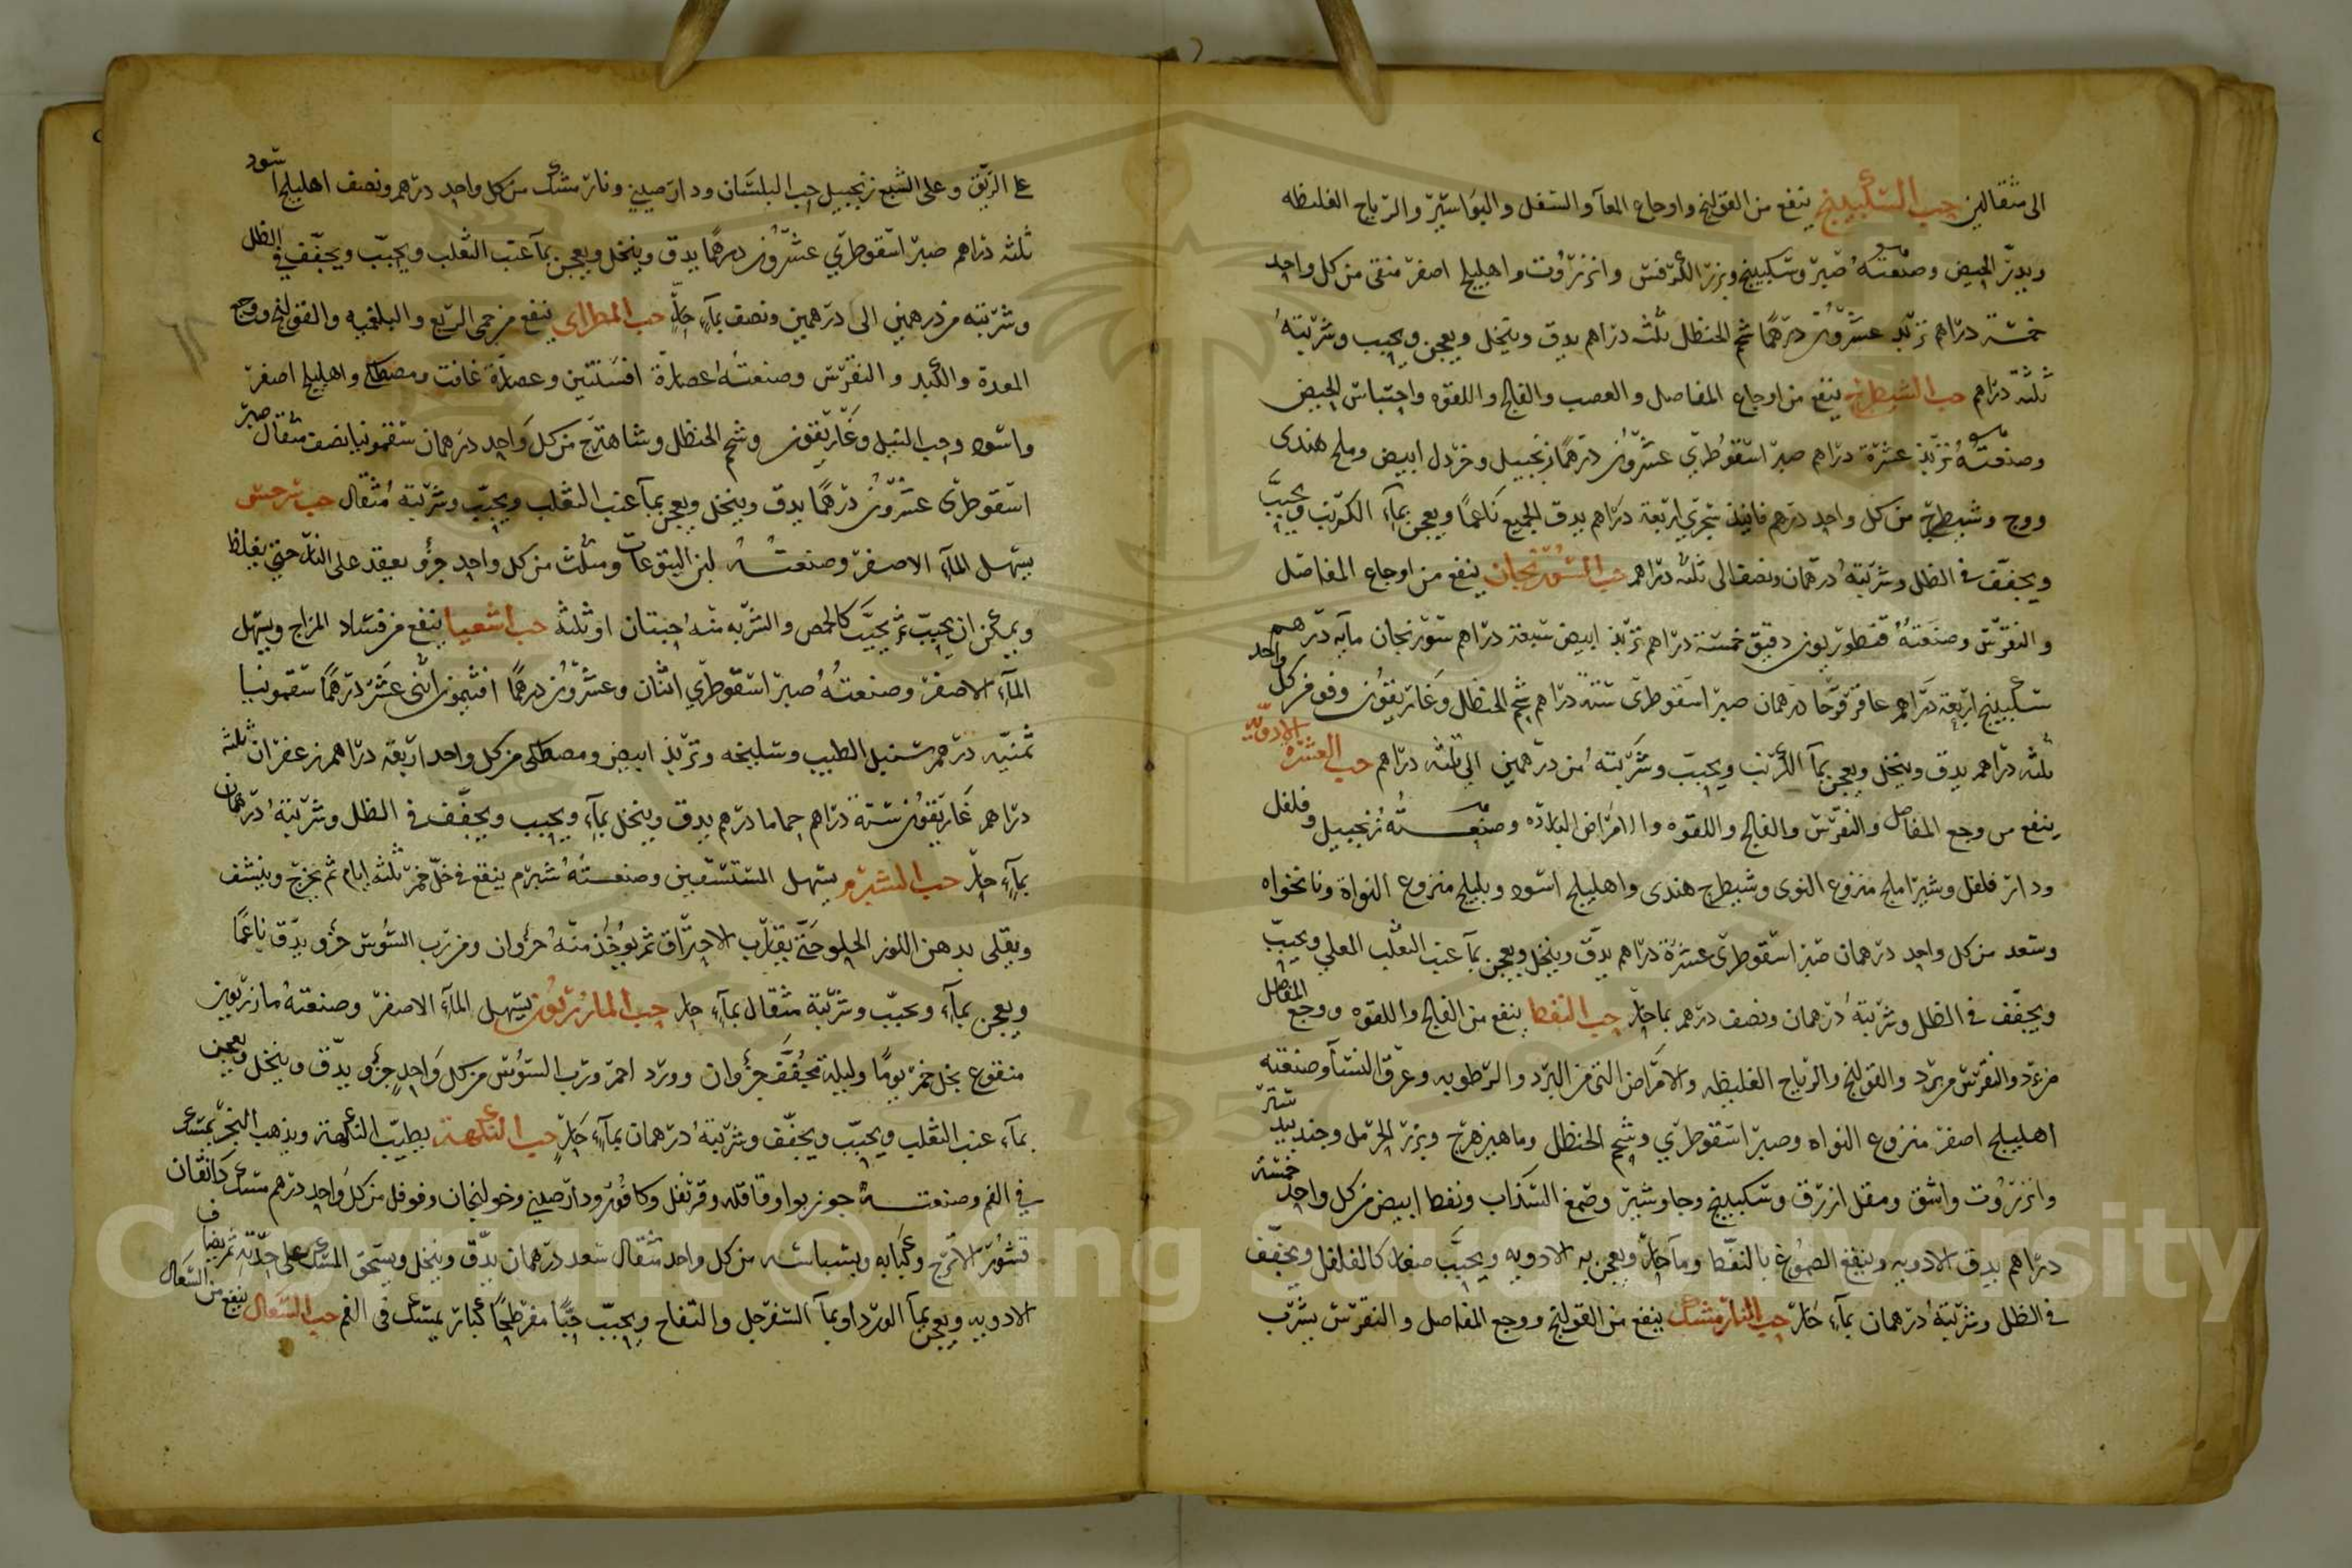 الى مثقالين حب السكبينج ينفع من القولنج واوجاع المعآ والسفل والبواسير والرياح الغليظه
ويدرّ الحيض وصنعته صبر وسكبينج وبزر الكرفس وانزروت واهليلج اصفر منقى من كل واحد
خمسة دراهم تربد عشرون درهمًا شحم الحنظل ثلثه دراهم يدق وينخل ويعجن ويحبب وشربته
ثلثه دراهم حب الشيطرج ينفع من اوجاع المفاصل والعصب والفالج واللقوه واحتباس الحيض
وصنعته تربد عشرة دراهم صبر اسقوطري عشرون درهمًا زنجبيل وخردل ابيض وملح هندى
ووج وشيطرج من كل واحد درهم فانيذ سجزي اربعة دراهم يدق الجميع ناعمًا ويعجن بمآء الكرنب ويحبب
ويجفف في الظل وشربته درهمان ونصف الى ثلثه دراهم حب السورنجان ينفع من اوجاع المفاصل
والنقرس وصنعته قنطوريون دقيق خمسة دراهم تربد ابيض سبعة دراهم سورنجان مآيه درهم
سكبينج اربعة دراهم عاقرقرحا درهمان صبر اسقوطرى ستة دراهم شحم الحنظل وغاريقون وفوة من كل واحد
ثلثه دراهم يدق وينخل ويعجن بمآ الكرنب ويحبب وشربته من درهمين الى ثلثه دراهم حب العشرة الادوية
ينفع من وجع المفاصل والنقرس والفالج واللقوه والامراض البارده وصنعته زنجبيل وفلفل
ودار فلفل وشيرا ملج منزوع النوى وشيطرج هندى واهليلج اسود وبليلج منزوع النواة ونانخواه
وسعد من كل واحد درهمان صبر اسقوطرى عشرة دراهم يدق وينخل ويعجن بمآ عنب الثعلب المغلي ويحبب
ويجفف في الظل وشربته درهمان ونصف درهم بمآ حارّ حب النفط ينفع من الفالج واللقوه ووجع المفاصل
والنقرس والقولنج والرياح الغليظه والامراض التى من البرد والرطوبه وعرق النسآ وصنعته
اهليلج اصفر منزوع النواه وصبر اسقوطري وشحم الحنظل وماهيزهرج وبزر الحرمل وجندبيدستر
وانزروت واشق ومقل ازرق وسكبينج وجاوشير وصمغ السذاب ونفط ابيض من كل واحد خمسة
دراهم يدق الادويه وينقع الصموغ بالنفط ومآ حارّ ويعجن به الادويه ويحبب صغار كالفلفل ويجفف
في الظل وشربته درهمان بمآء حار حب النارمشك ينفع من القولنج ووجع المفاصل والنقرس يشرب
على الريق وعلى الشبع زنجبيل حب البلسان ودارصيني ونارمشك من كل واحد درهم ونصف اهليلج اسود
ثلثه دراهم صبر اسقوطري عشرون درهمًا يدق وينخل ويعجن بمآ عنب الثعلب ويحبب ويجفف في الظل
وشربته من درهمين الى درهمين ونصف بمآء حارّ حب ينفع من حمى الربع والبلغميه والقولنج ووجع
المعدة والكبد والنقرس وصنعته عصارة افسنتين وعصارة غافت ومصطكى واهليلج اصفر
واسود وحب النيل وغاريقون وشحم الحنظل وشاهترج من كل واحد درهمان سقمونيا نصف مثقال صبر
اسقوطرى عشرون درهمًا يدق وينخل ويعجن بمآ عنب الثعلب ويحبب وشربته مثقال حب
يسهل المآء الاصفر وصنعته لبن اليتوعات ومثلث من كل واحد جزؤ يعقد على النار حتى يغلظ
ويمكن ان يحبب ثم يحبب كالحمص والشربه منه حبتان او ثلثة حب اشعيا ينفع من فساد المزاج ويسهل
المآء الاصفر وصنعته صبر اسقوطري اثنان وعشرون درهمًا افتيمون اثنى عشر درهمًا سقمونيا
ثمنيه درهم سنبل الطيب وسليخه وتربد ابيض ومصطكى من كل واحد اربعة دراهم زعفران ثلثه
دراهم غاريقون ستة دراهم حماما درهم يدق وينخل بمآء ويحبب ويجفف في الظل وشربته درهمان
بمآء حارّ حب الشبرم يسهل المستسقين وصنعته شبرم ينقع في خلّ خمر ثلثه ايام ثم يخرج وينشف
ويقلى بدهن اللوز الحلو حتى يقارب الاحتراق ثم يؤخذ منه جزؤان ومن رب السوس جزؤ يدق ناعمًا
ويعجن بمآء ويحبب وشربته مثقال بمآء حار حب المازريون يسهل المآء الاصفر وصنعته مازريون
منقوع بخل خمر يومًا وليلة مجفف جزؤان وورد احمر ورب السوس من كل واحد جزؤ يدق وينخل ويعجن
بمآء عنب الثعلب ويحبب ويجفف وشربته درهمان بمآء حارّ حب النكهة يطيب النكهة ويذهب البخر يمسك
في الفم وصنعته جوز بوا وقاقله وقرنفل وكافور ودارصيني وخولنجان وفوفل من كل واحد درهم مسك دانقان
قشور الاترج وكبابه وبسباسه من كل واحد مثقال سعد درهمان يدق وينخل ويسحق المسك على حدته ثم يضاف
الادويه ويعجن بمآ الورد او بمآ السفرجل والتفاح ويحبب حبًا مفرطحًا كبار يمسك في الفم حب السعال ينفع من السعال
Copyright © King Saud University
1957